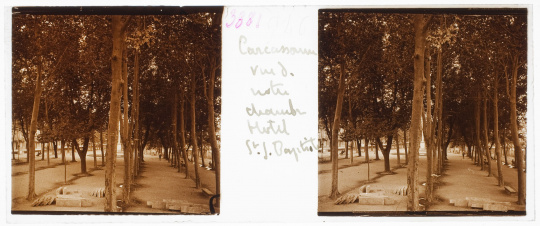 3881
Carcassonne
vue d.
notre
chambre
Hotel
St. J. Baptiste